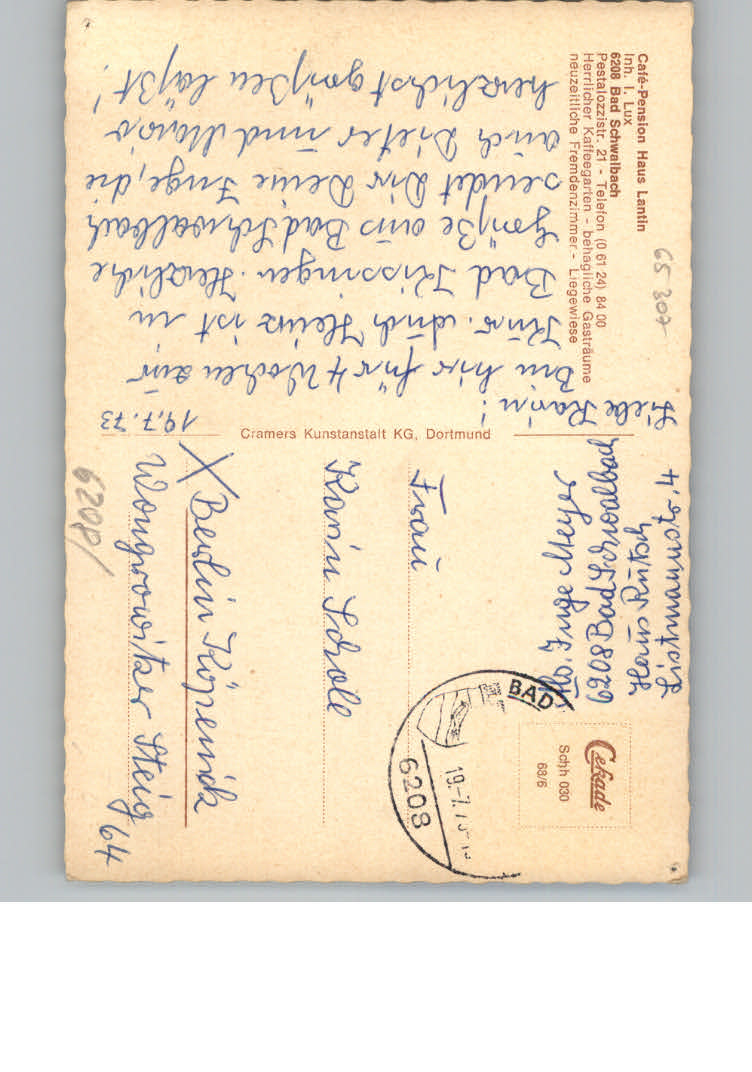 Café-Pension Haus Lantin
Inh. I. Lux
6208 Bad Schwalbach
Pestalozzistr. 21 - Telefon (0 61 24) 84 00
Herrlicher Kaffeegarten - behagliche Gasträume
neuzeitliche Fremdenzimmer - Liegewiese
65 307
19.7.73
Liebe Karin!
Bin hier für 4 Wochen zur
Kur. Auch Heinz ist in
Bad Kissingen. Herzliche
Grüße aus Bad Schwalbach
sendet Dir Deine Inge, die
auch Dieter und Mario
herzlichst grüßen läßt!
Cramers Kunstanstalt KG, Dortmund
Abs. Inge
6208 Bad Schwalbach
Haus
Cekade
Schh 030
68/6
BAD
19.-7.7
6208
Frau
Karin Scholl
X Berlin Köpenick
Wongrowitzer Steig 64
6208/